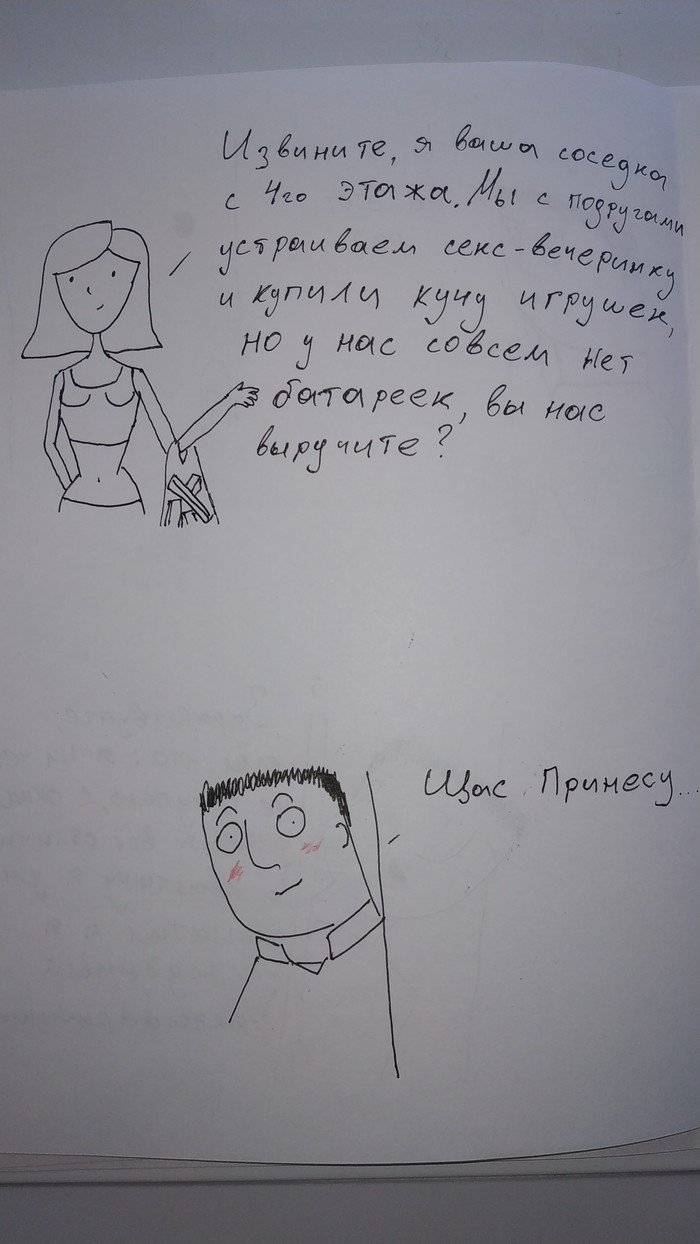 Извините, я ваша соседка
с 4го этажа. Мы с подругами
устраиваем секс-вечеринку
и купили кучу игрушек,
но у нас совсем нет
батареек, вы нас
выручите?
Щас принесу...